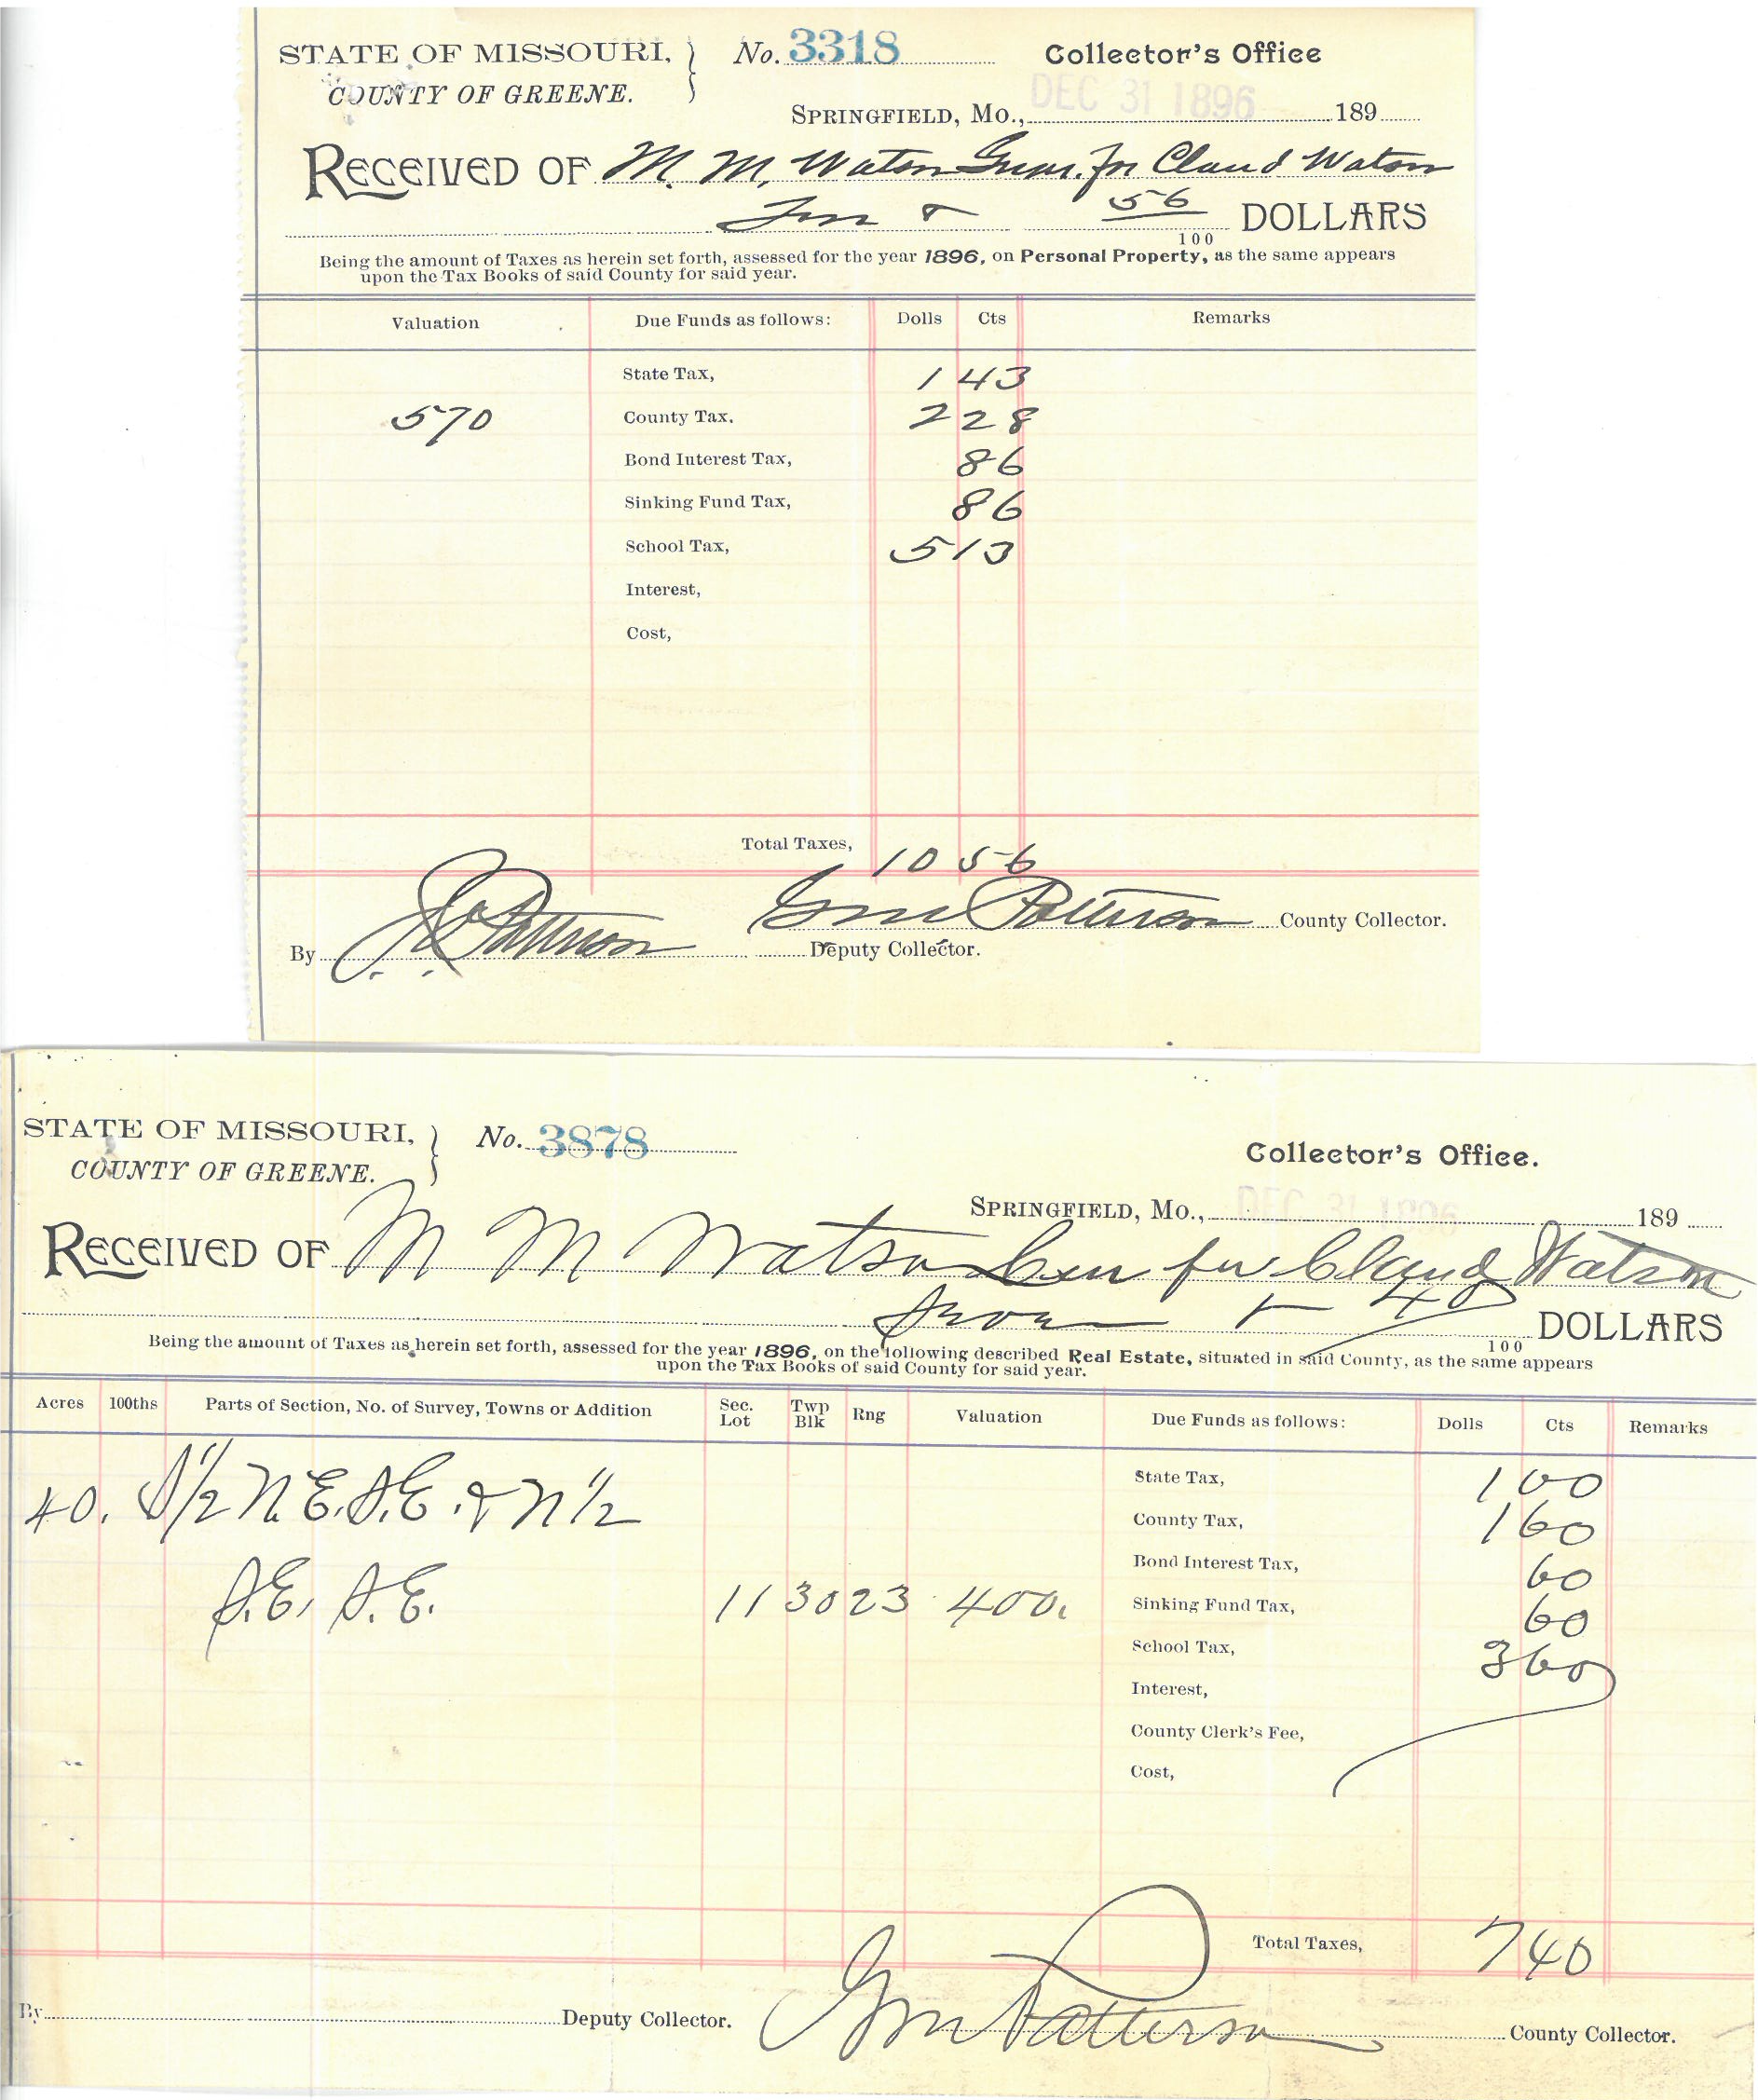 STATE OF MISSOURI, No. 3318 Collector's Office
COUNTY OF GREENE.
SPRINGFIELD, Mo., DEC 31 1896 189
RECEIVED OF M. M. Watson for Claud Watson
Ten & 56/100 DOLLARS
Being the amount of Taxes as herein set forth, assessed for the year 1896, on Personal Property, as the same appears
upon the Tax Books of said County for said year.
Valuation Due Funds as follows: Dolls Cts Remarks
State Tax, 1 43
570 County Tax. 2 28
Bond Interest Tax, 86
Sinking Fund Tax, 86
School Tax, 5 13
Interest,
Cost,
Total Taxes, 10 56
Patterson County Collector.
By Patterson Deputy Collector.
STATE OF MISSOURI, No. 3878
COUNTY OF GREENE. Collector's Office.
SPRINGFIELD, Mo., DEC 31 1896 189
RECEIVED OF M M Watson for Claud Watson
Seven & 40/100 DOLLARS
Being the amount of Taxes as herein set forth, assessed for the year 1896, on the following described Real Estate, situated in said County, as the same appears
upon the Tax Books of said County for said year.
Acres 100ths Parts of Section, No. of Survey, Towns or Addition Sec. Lot Twp Blk Rng Valuation Due Funds as follows: Dolls Cts Remarks
40. S 1/2 N.E. S.E. & N 1/2 State Tax, 1 00
County Tax, 1 60
Bond Interest Tax, 60
S.E. S.E. 11 30 23 400. Sinking Fund Tax, 60
School Tax, 3 60
Interest,
County Clerk's Fee,
Cost,
Total Taxes, 7 40
By Deputy Collector. Patterson County Collector.